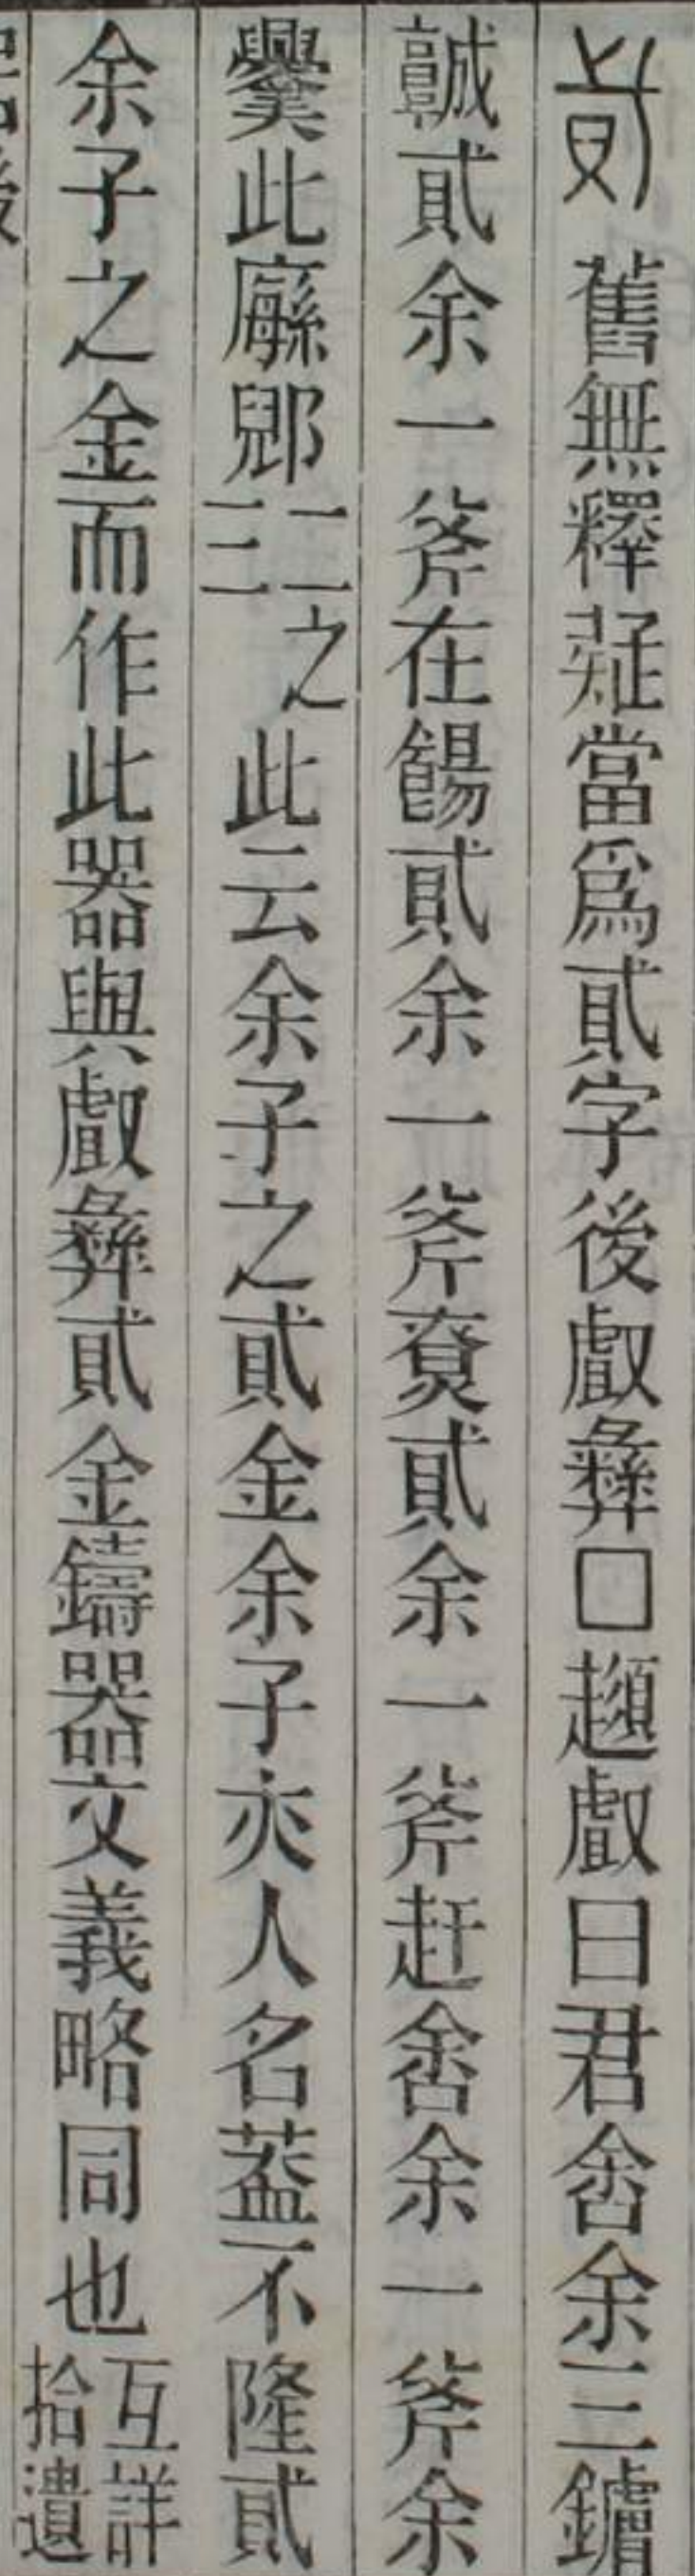 舊無釋疑當爲貳字後䖒彝□趞䖒曰君舍余三鑪
貳余一斧在餳貳余一斧賮貳余一斧赶舍余一斧余
此廯鄉二之三此云余子之貳金余子夾人名葢不隆貳
余子之金而作此器與䖒彝貳金鑄器文義略同也互詳拾遺